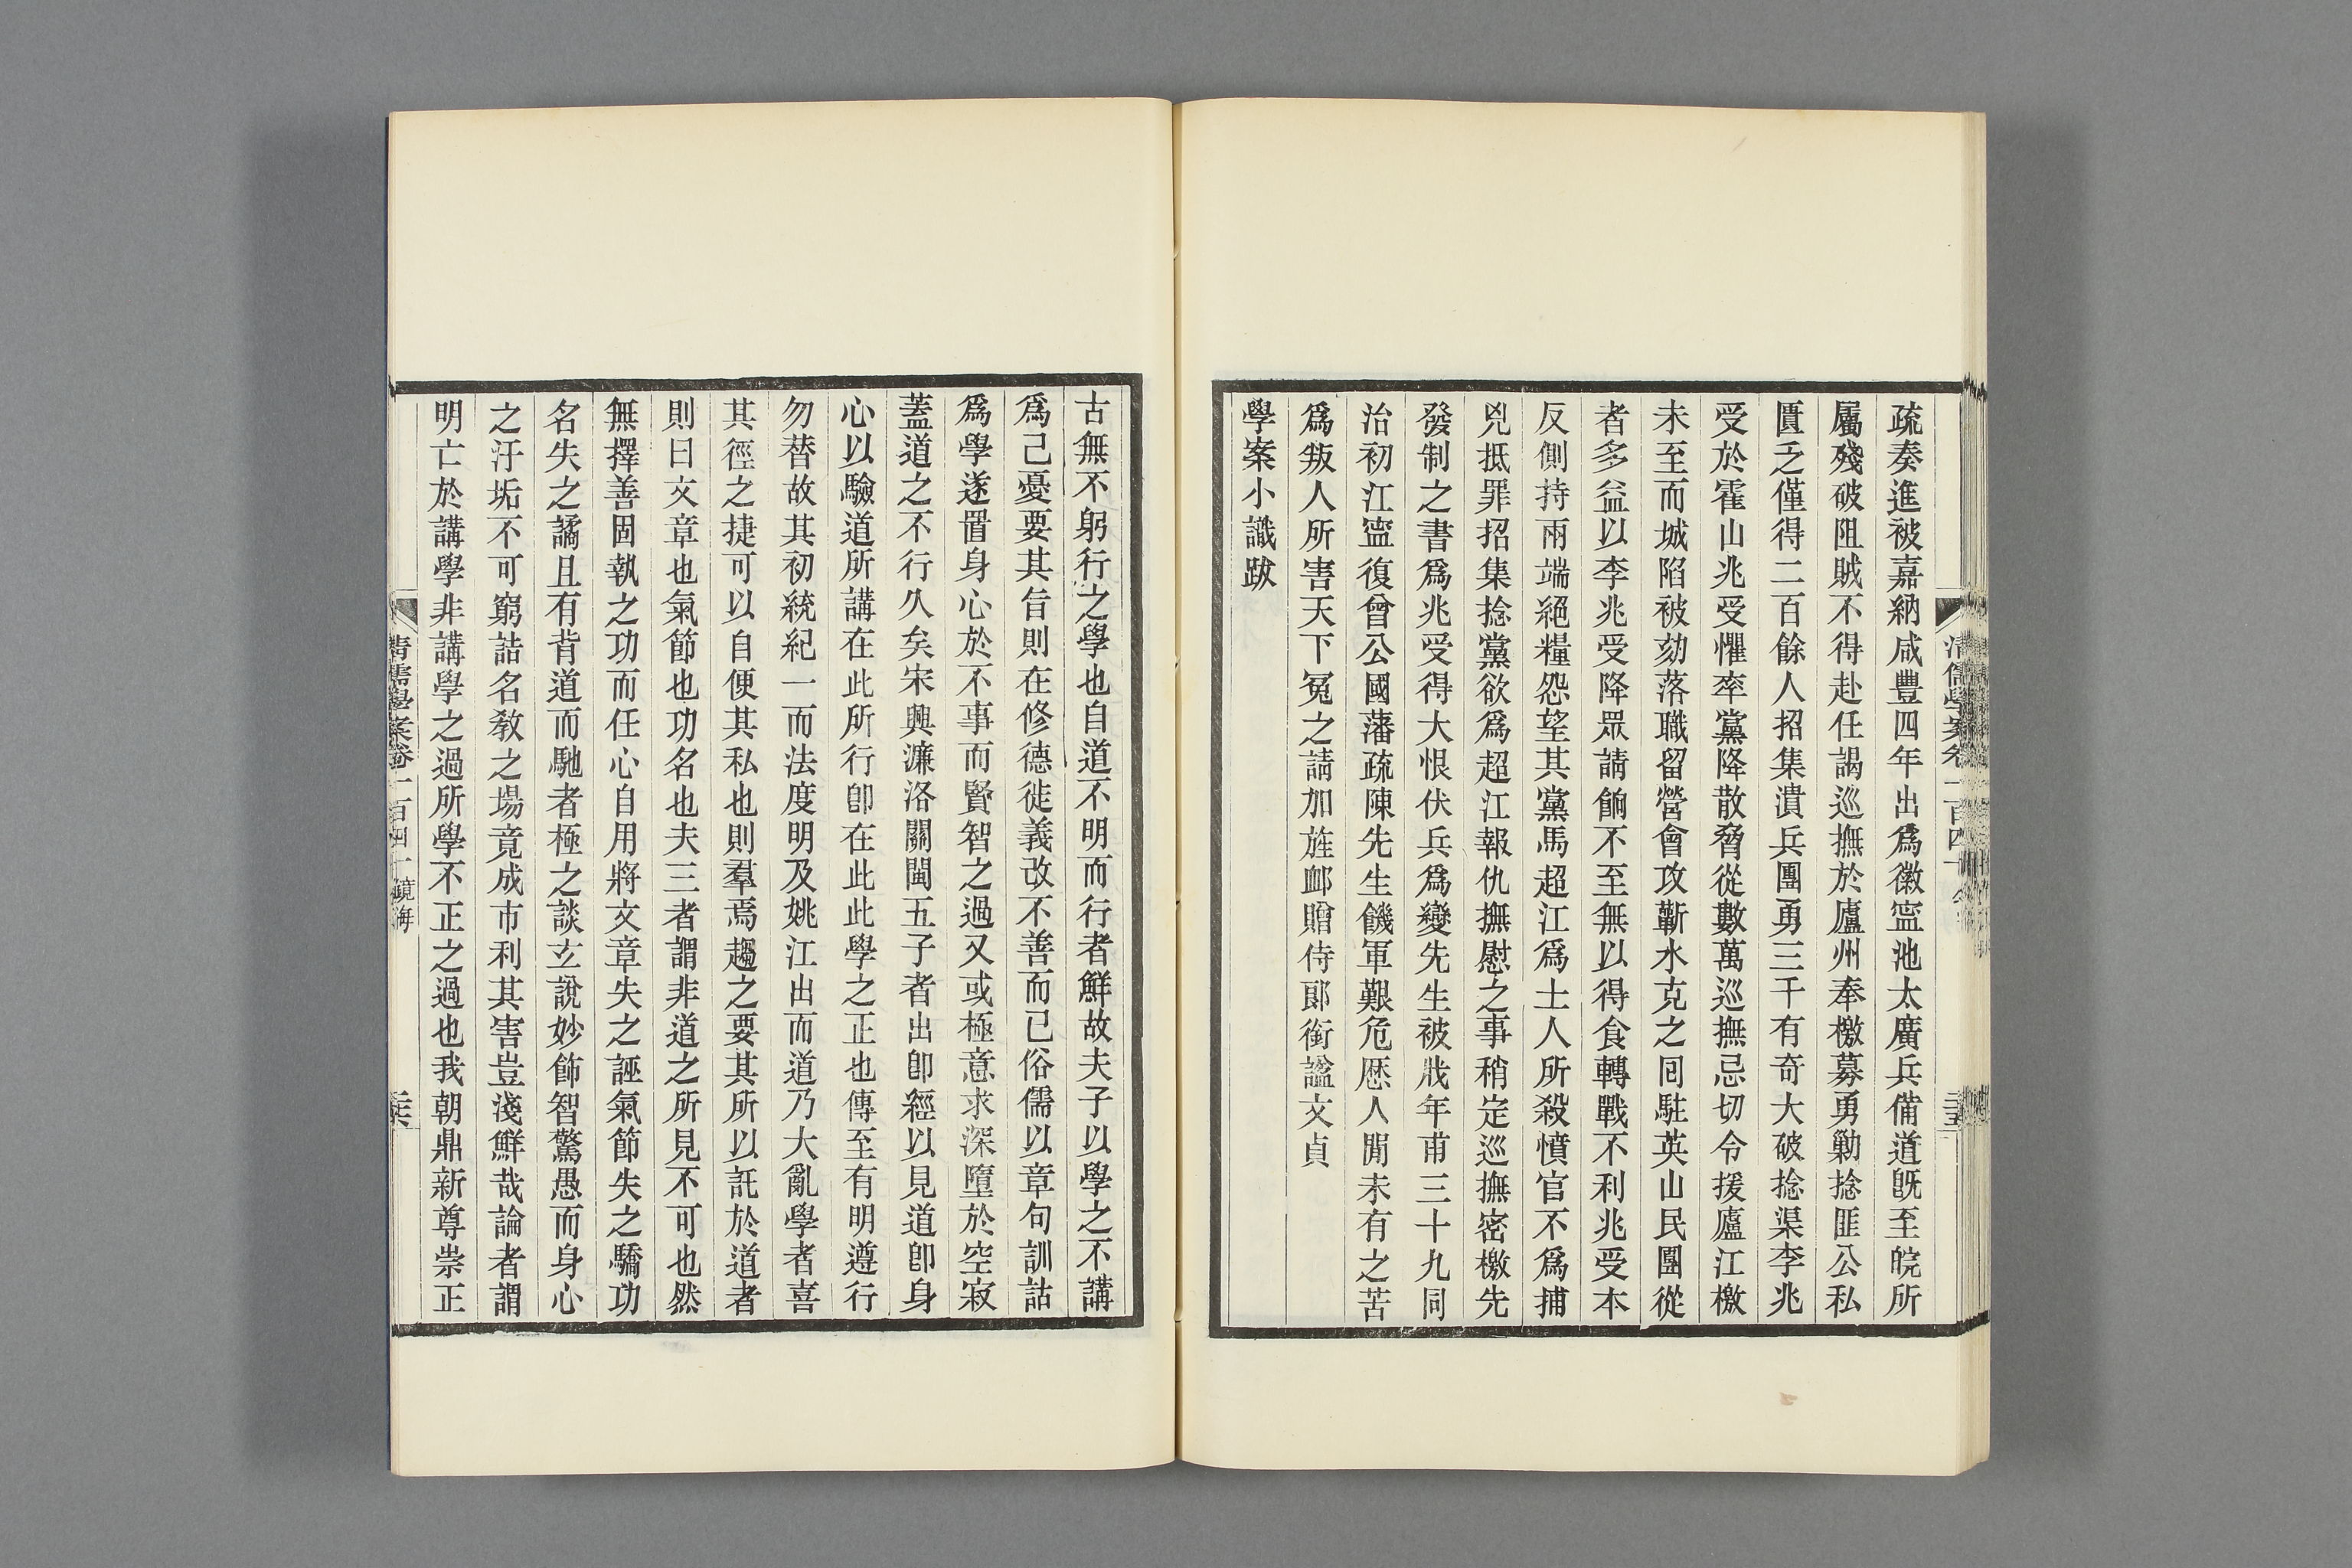 疏奏進被嘉納咸豐四年出爲徽寍池太廣兵備道旣至皖所
屬殘破阻賊不得赴任謁巡撫於廬州奉檄募勇勦捻匪公私
匱乏僅得二百餘人招集潰兵團勇三千有奇大破捻渠李兆
受於霍山兆受懼率黨降散脅從數萬巡撫忌切令援廬江檄
未至而城陷被劾落職留營會攻蘄水克之囘駐英山民團從
者多益以李兆受降眾請餉不至無以得食轉戰不利兆受本
反側持兩端絕糧怨望其黨馬超江爲土人所殺憤官不爲捕
兇抵罪招集捻黨欲爲超江報仇撫慰之事稍定巡撫密檄先
發制之書爲兆受得大恨伏兵爲變先生被戕年甫三十九同
治初江寍復曾公國藩疏陳先生饑軍艱危歷人閒未有之苦
爲叛人所害天下冤之請加旌䘏贈侍郞銜諡文貞
學案小識跋
清儒學案卷一百四十
三五
古無不躬行之學也自道不明而行者鮮故夫子以學之不講
爲己憂要其旨則在修德徙義改不善而已俗儒以章句訓詁
爲學遂置身心於不事而賢智之過又或極意求深墮於空寂
蓋道之不行久矣宋興濂洛關閩五子者出卽經以見道卽身
心以驗道所講在此所行卽在此此學之正也傳至有明遵行
勿替故其初統紀一而法度明及姚江出而道乃大亂學者喜
其徑之捷可以自便其私也則羣焉趨之要其所以託於道者
則曰文章也氣節也功名也夫三者謂非道之所見不可也然
無擇善固執之功而任心自用將文章失之誣氣節失之驕功
名失之譎且有背道而馳者極之談玄說妙飾智驚愚而身心
之汙垢不可窮詰名敎之場竟成市利其害豈淺鮮哉論者謂
明亡於講學非講學之過所學不正之過也我朝鼎新尊崇正
清儒學案卷一百四十 鏡海
三六